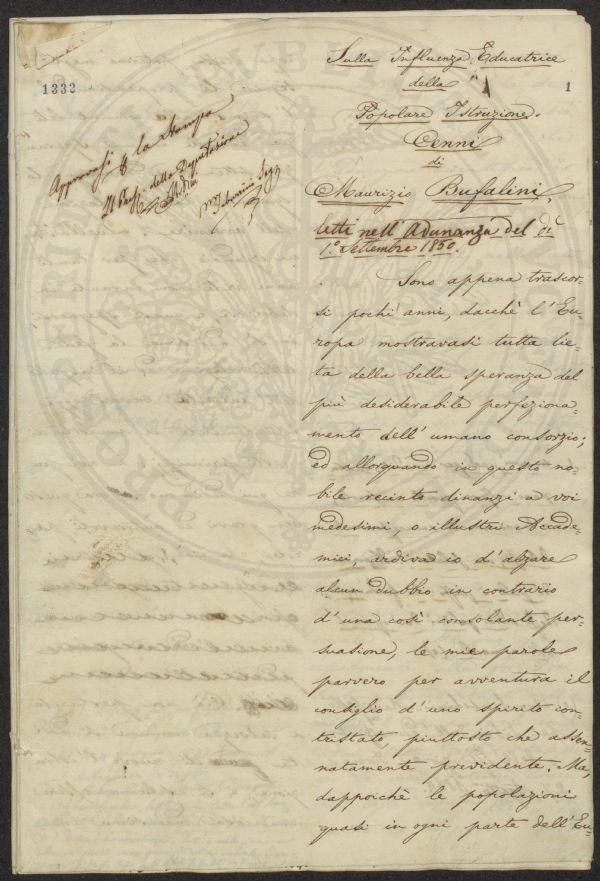 1332
1
Sulla Influenza Educatrice
della
Popolare Istruzione.
Cenni
di
Maurizio Bufalini,
letti nell'Adunanza del dì
1.º Settembre 1850.
Approvasi per la stampa
Il Pres. della Deputazione
Sono appena trascor-
si pochi anni, dacchè l'Eu-
ropa mostravasi tutta lie-
ta della bella speranza del
più desiderabile perfeziona-
mento dell'umano consorzio;
ed allorquando in questo no-
bile recinto dinanzi a voi
medesimi, o illustri Accade-
mici, ardiva io d'alzare
alcun dubbio in contrario
d'una così consolante per-
suasione, le mie parole
parvero per avventura il
consiglio d'uno spirito con-
tristato, piuttosto che assen-
natamente previdente. Ma,
dappoichè le popolazioni
quasi in ogni parte dell'Eu-